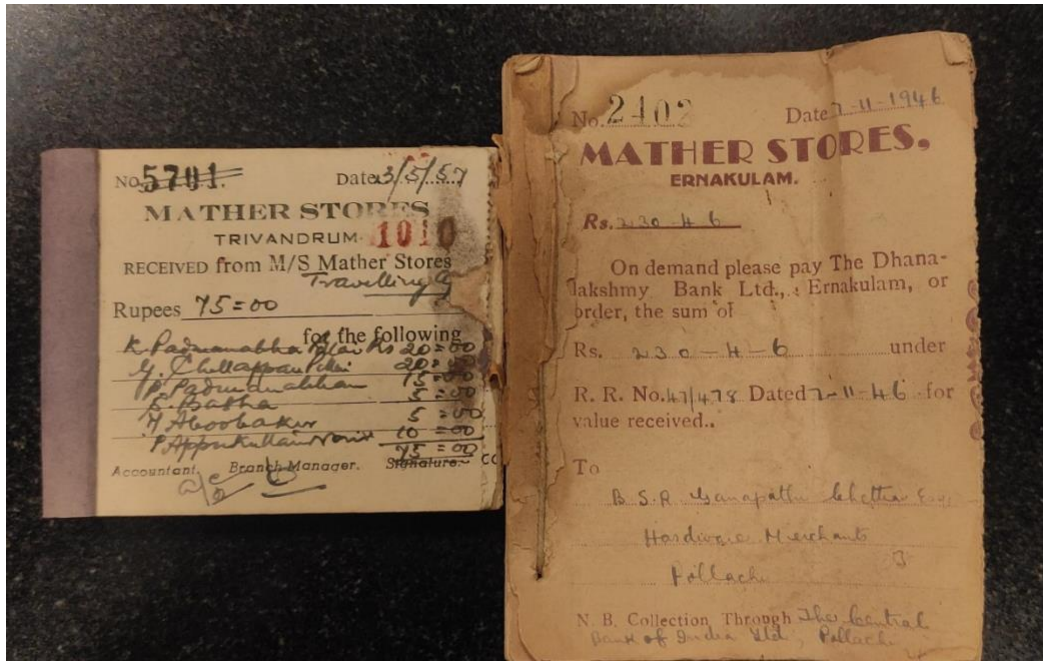 No. 5701.
Date 3/5/57
MATHER STORES
TRIVANDRUM 1010
RECEIVED from M/S Mather Stores
Travelling
Rupees 75=00
for the following
K. Padmanabha Rs 20=00
G. Chellappan
P. Padmanabhan 15
5=00
H Aboobaker 5=00
10=00
75=00
Accountant. Branch Manager. Signature.
No. 2402 Date 7-11-1946
MATHER STORES,
ERNAKULAM.
Rs. 230-4-6
On demand please pay The Dhana-
lakshmy Bank Ltd., Ernakulam, or
order, the sum of
Rs. 230-4-6 under
R. R. No. 47/478 Dated 7-11-46 for
value received..
To
B. S. R. Ganapathi Chettiar Esq.
Hardware Merchants
Pollachi
N. B. Collection Through The Central
Bank of India Ltd., Pollachi